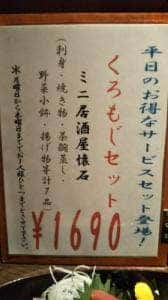 平日のお得なサービスセット登場!
くろもじセット
ミニ居酒屋懐石
(刺身・焼き物・茶碗蒸し・
野菜小鉢・揚げ物等計7品)
¥1690
※月曜日から木曜日まで